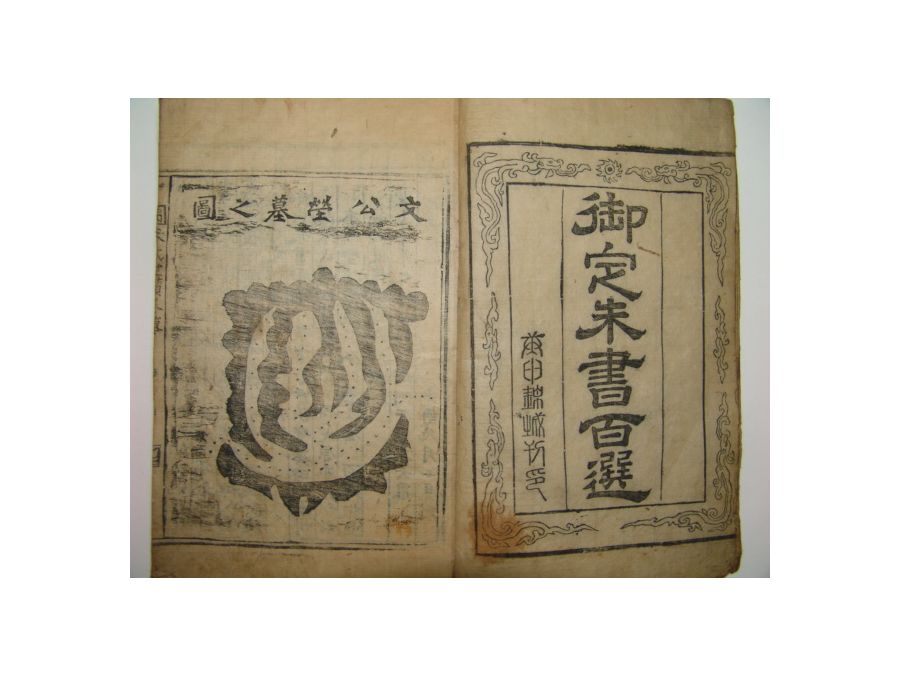 御定朱書百選
庚申錦城刊印
文公塋墓之圖